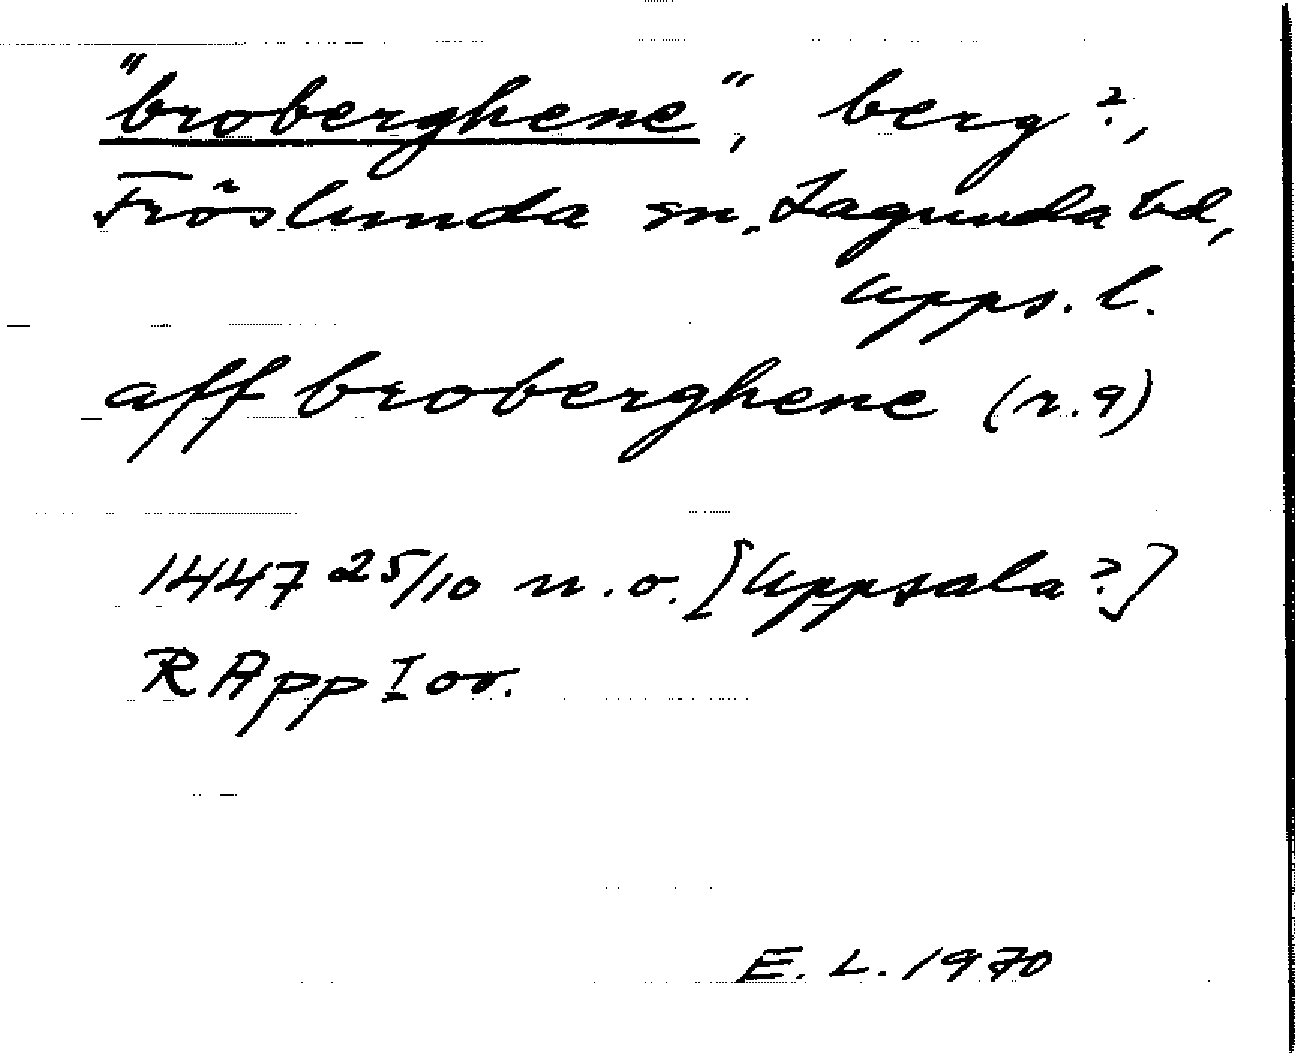 "broberghene", berg?,
Fröslunda sn, Lagunda hd,
Upps. l.
aff broberghene (r. 9)
1447 25/10 u. o. [Uppsala?]
RApp I or.
E. L. 1970